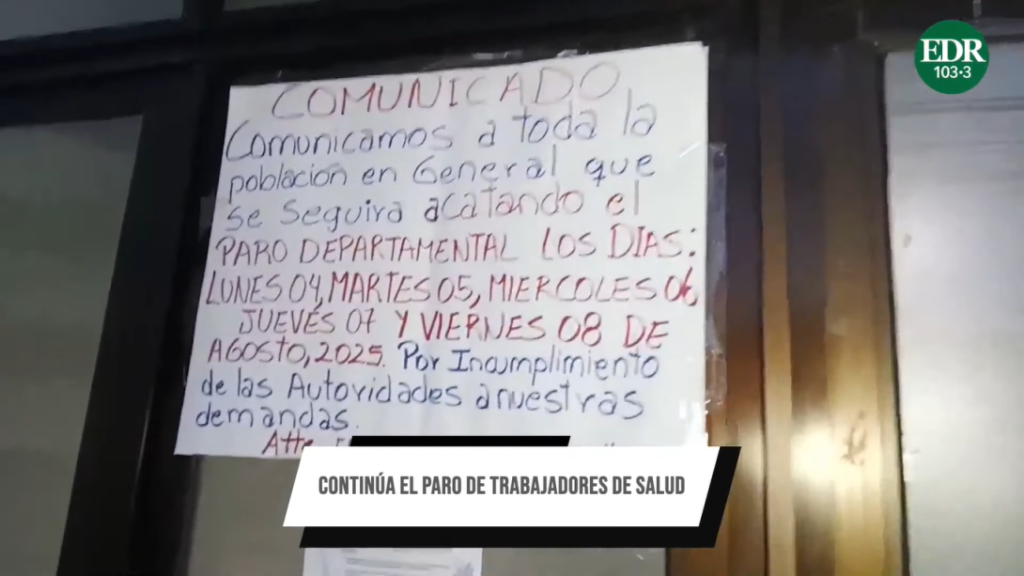 EDR
103.3
COMUNICADO
Comunicamos a toda la
población en General que
se seguira acatando el
PARO DEPARTAMENTAL LOS DIAS:
LUNES 04, MARTES 05, MIERCOLES 06
JUEVES 07 Y VIERNES 08 DE
AGOSTO, 2025. Por Incumplimiento
de las Autoridades a nuestras
demandas.
Atte
CONTINÚA EL PARO DE TRABAJADORES DE SALUD